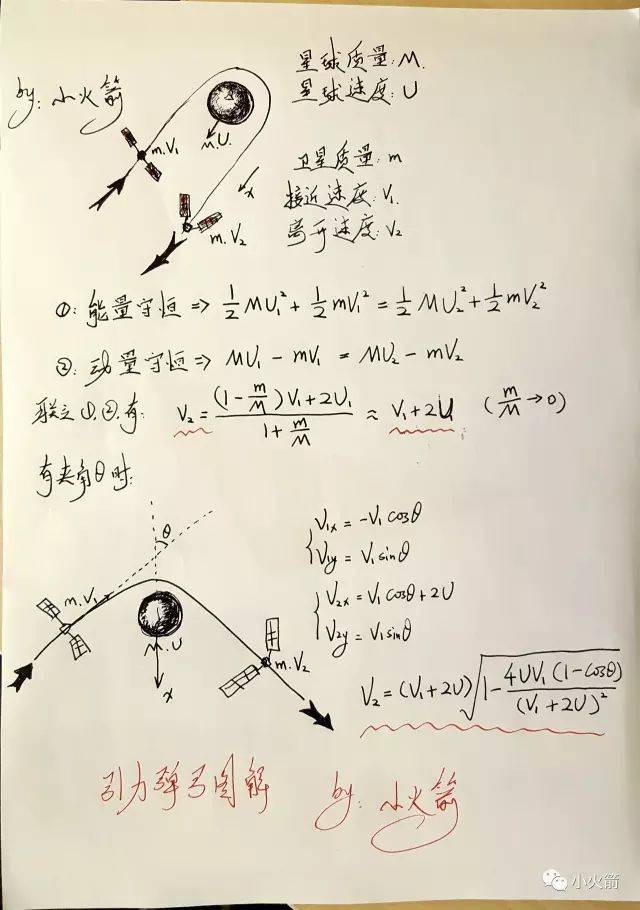 星球质量:M.
星球速度:U
by:小火箭
m.V₁
M.U.
x
m.V₂
卫星质量:m
接近速度:V₁.
离开速度:V₂
①:能量守恒 => 1/2 MU₁² + 1/2 mV₁² = 1/2 MU₂² + 1/2 mV₂²
②:动量守恒 => MU₁ - mV₁ = MU₂ - mV₂
联立①,②,有: V₂ = ((1 - m/M)V₁ + 2U₁)/(1 + m/M) ≈ V₁ + 2U (m/M → 0)
有夹角θ时:
θ
m.V₁
M.U
x
m.V₂
V₁x = -V₁cosθ
V₁y = V₁sinθ
V₂x = V₁cosθ + 2U
V₂y = V₁sinθ
V₂ = (V₁ + 2U)√(1 - (4UV₁(1 - cosθ))/(V₁ + 2U)²)
引力弹弓图解 by:小火箭
小火箭